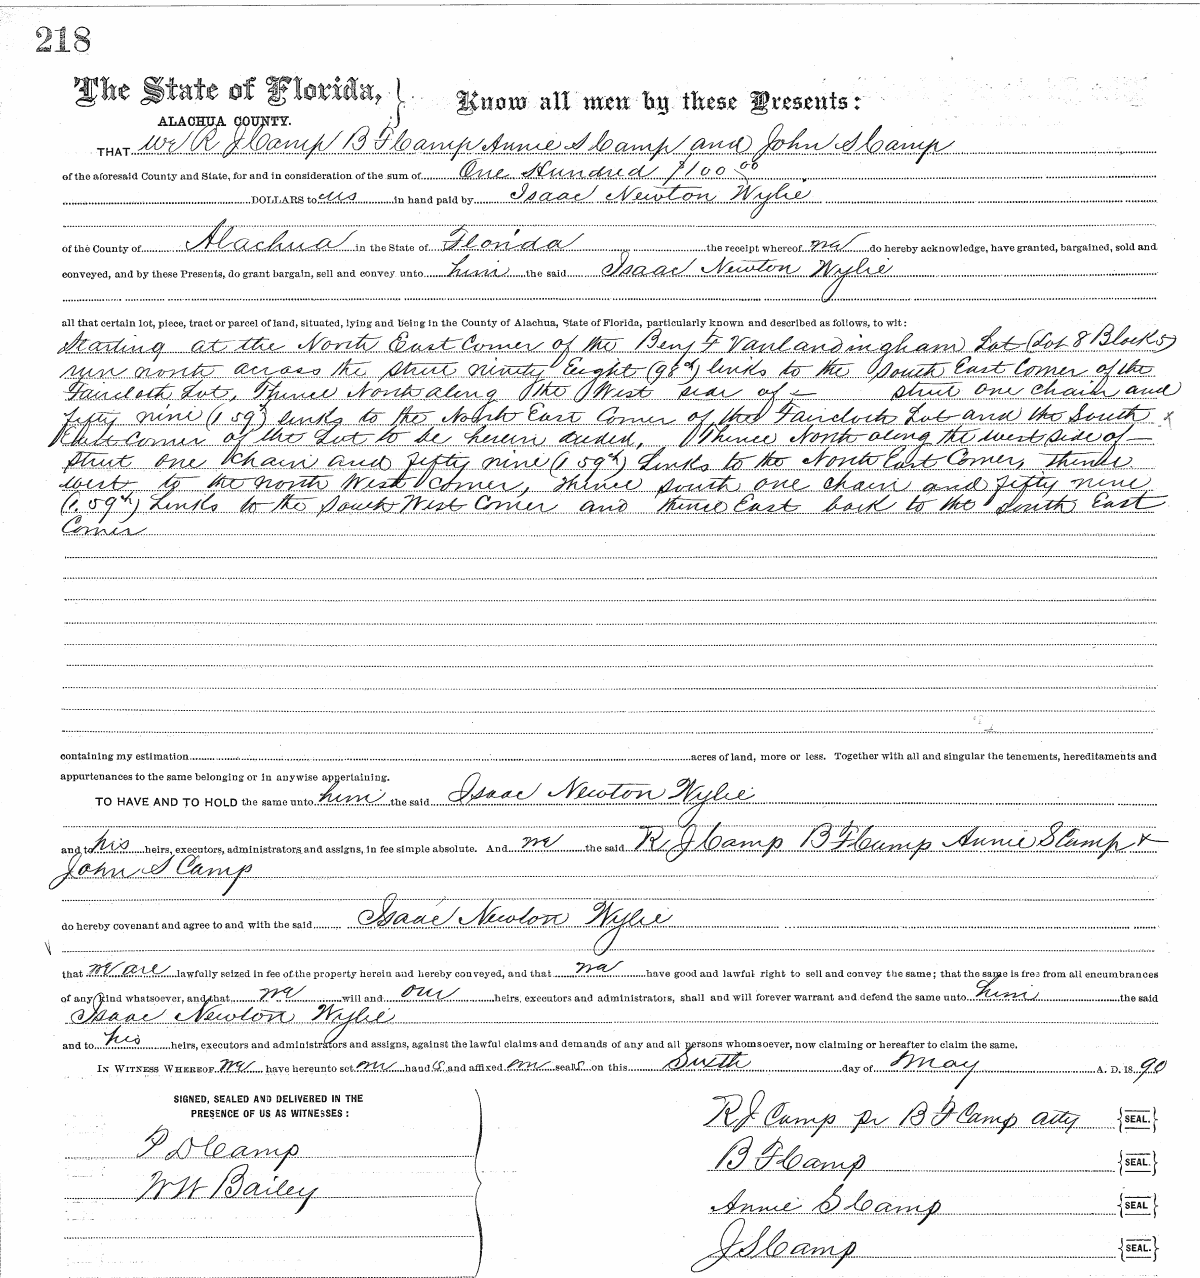 218
The State of Florida,
ALACHUA COUNTY.
Know all men by these Presents:
THAT We R J Camp B F Camp Annie S Camp and John S Camp
of the aforesaid County and State, for and in consideration of the sum of One Hundred $100 00
DOLLARS to us in hand paid by Isaac Newton Wylie
of the County of Alachua in the State of Florida the receipt whereof we do hereby acknowledge, have granted, bargained, sold and
conveyed, and by these Presents, do grant bargain, sell and convey unto him the said Isaac Newton Wylie
all that certain lot, piece, tract or parcel of land, situated, lying and being in the County of Alachua, State of Florida, particularly known and described as follows, to wit:
Starting at the North East Corner of the Benj F Vanlandingham Lot (Lot 8 Block 5)
run north across the street ninety Eight (98th) links to the South East Corner of the
Faircloth Lot, Thence North along the West side of – street one chain and
fifty nine (1 59th) links to the North East Corner of the Faircloth Lot and the South
East Corner of the Lot to be herein deeded, Thence North along the west side of –
street one chain and fifty nine (1 59th) Links to the North East Corner, thence
west to the north West Corner, thence south one chain and fifty nine
(1.59th) Links to the South West Corner and thence East back to the South East
Corner
containing my estimation acres of land, more or less. Together with all and singular the tenements, hereditaments and
appurtenances to the same belonging or in anywise appertaining.
TO HAVE AND TO HOLD the same unto him the said Isaac Newton Wylie
and to his heirs, executors, administrators and assigns, in fee simple absolute. And we the said R J Camp B F Camp Annie S Camp &
John S Camp
do hereby covenant and agree to and with the said Isaac Newton Wylie
that we are lawfully seized in fee of the property herein and hereby conveyed, and that we have good and lawful right to sell and convey the same; that the same is free from all encumbrances
of any kind whatsoever, and that we will and our heirs, executors and administrators, shall and will forever warrant and defend the same unto him the said
Isaac Newton Wylie
and to his heirs, executors and administrators and assigns, against the lawful claims and demands of any and all persons whomsoever, now claiming or hereafter to claim the same.
IN WITNESS WHEREOF we have hereunto set our hand s and affixed our seal s on this Sixth day of May A. D. 18 90
SIGNED, SEALED AND DELIVERED IN THE
PRESENCE OF US AS WITNESSES:
P D Camp
W W Bailey
R J Camp pr B F Camp atty {SEAL.}
B F Camp {SEAL.}
Annie S Camp {SEAL}
J S Camp {SEAL.}